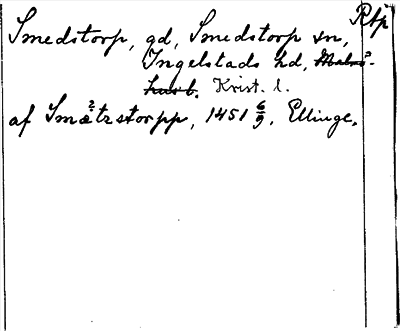 Rbjr
Smedstorp, gd, Smedstorp sn,
Ingelstads hd, Malmö-
hus l. Krist. l.
af Smætzstorpp, 1451 6/9, Ellinge.